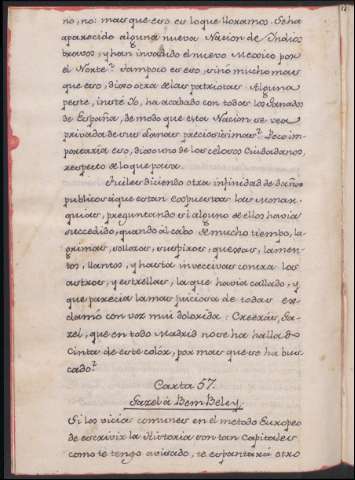 no, no: mas que esso es lo que lloramos. Se ha
aparecido alguna nueva Nacion de Indios
bravos, y han invadido el nuevo Mexico por
el Norte? Tampoco es eso, sinó mucho mas
que eso, dixo otra delas patriotas. Alguna
peste, insté Yo, ha acabado con todos los Ganados
de España, de modo que esta Nacion se vea
privada de sus lanas preciosisimas? Poco im-
portaria eso, dixo uno de los celosos Ciudadanos,
respecto de loque pasa.
Fuiles diciendo otra infinidad de daños
publicos aque estan expuestas las Monar-
quias, preguntando si alguno de ellos havia
succedido, quando al cabo de mucho tiempo, la-
grimas, sollozos, suspiros, quexas, lamen-
tos, llantos, y hasta invectivas contra los
astros, y estrellas, la que havia callado, y
que parecia lamas juiciosa de todas ex-
clamó con voz mui dolorida: Creerás, Ga-
zel, que en todo Madrid nose ha hallado
Cinta de este colór, por mas que se ha bus-
cado?
Carta 57.
Gazel á Bem-Beley.
Si los vicios comunes en el metodo Europeo
de escrivir la Historia son tan Capitales
como te tengo avisado, te espantará otro